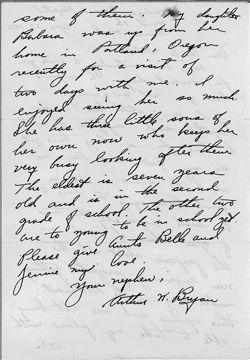 some of them. My daughter
Barbara was up from her
home in Portland, Oregon
recently for a visit of
two days with me. I
enjoyed seeing her so much.
She has three little sons of
her own now who keeps her
very busy looking after them
The eldest is seven years
old and is in the second
grade of school, the other two
are to young to be in school yet
Please give Aunts Belle and
Jennie my love.
Your nephew,
Arthur W. Bryan